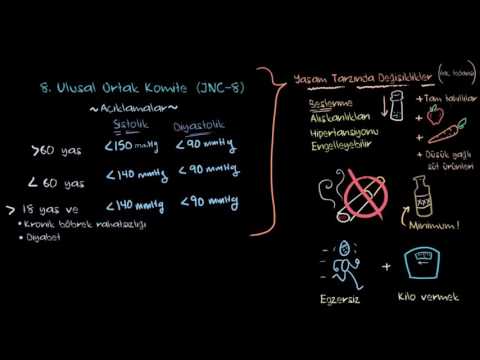 8. Ulusal Ortak Komite (JNC-8)
~Açıklamalar~
Sistolik Diyastolik
>60 yaş <150 mmHg <90 mmHg
< 60 yaş <140 mmHg <90 mmHg
> 18 yaş ve <140 mmHg <90 mmHg
• Kronik böbrek rahatsızlığı
• Diyabet
Yaşam Tarzında Değişiklikler
Beslenme
Alışkanlıkları
Hipertansiyonu
Engelleyebilir
+ Tam tahıllılar
+
+
+ Düşük yağlı
süt ürünleri
XXX
Minimum!
+
Egzersiz
Kilo vermek